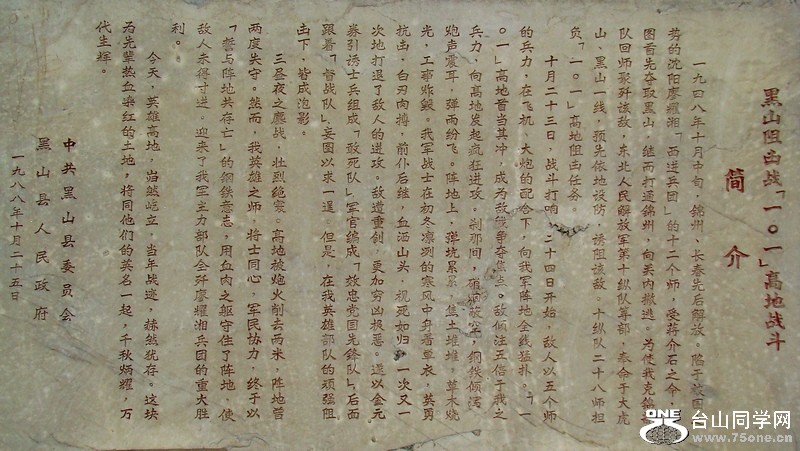 黑山阻击战「一〇一」高地战斗
简介
一九四八年十月中旬，锦州、长春先后解放，陷于
的沈阳廖耀湘「西进兵团」的十二个师，受蒋介石之令，
图首先夺取黑山，继而打通锦州，向关内撤逃。为使我克锦
队回师聚歼该敌，东北人民解放军第十纵队等部，奉命于大虎
山、黑山一线，预先依地设防，诱阻该敌。十纵队二十八师担
负「一〇一」高地阻击任务。
十月二十三日，战斗打响，二十四日开始，敌人以五个师
的兵力，在飞机、大炮的配合下，向我军阵地全线猛扑。「一
〇一」高地首当其冲，成为敌我争夺焦点。敌倾注五倍于我之
兵力，向高地发起疯狂进攻。刹那间，硝烟蔽空，钢铁倾泻
炮声震耳，弹雨纷飞。阵地上，弹坑累累，焦土堆堆，草木烧
光，工事炸毁。我军战士在初冬凛冽的寒风中身着单衣，英勇
抗击，白刃肉搏，前仆后继，血洒山头，视死如归，一次又一
次地打退了敌人的进攻。敌遭重创，更加穷凶极恶。遂以金元
券引诱士兵组成「敢死队」，军官编成「效忠党国先锋队」，后面
跟着「督战队」，妄图以求一逞。但是，在我英雄部队的顽强阻
击下，皆成泡影。
三昼夜之鏖战，壮烈绝寰。高地被炮火削去两米，阵地曾
两度失守。然而，我英雄之师，将士同心，军民协力，终于以
「誓与阵地共存亡」的钢铁意志，用血肉之躯守住了阵地，使
敌人未得寸进。迎来了我军主力部队全歼廖耀湘兵团的重大胜
利。
今天，英雄高地，岿然屹立，当年战迹，赫然犹存。这块
为先辈热血染红的土地，将同他们的英名一起，千秋炳耀，万
代生辉。
中共黑山县委员会
黑山县人民政府
一九八八年十月二十五日
ONE
台山同学网
www.75one.cn